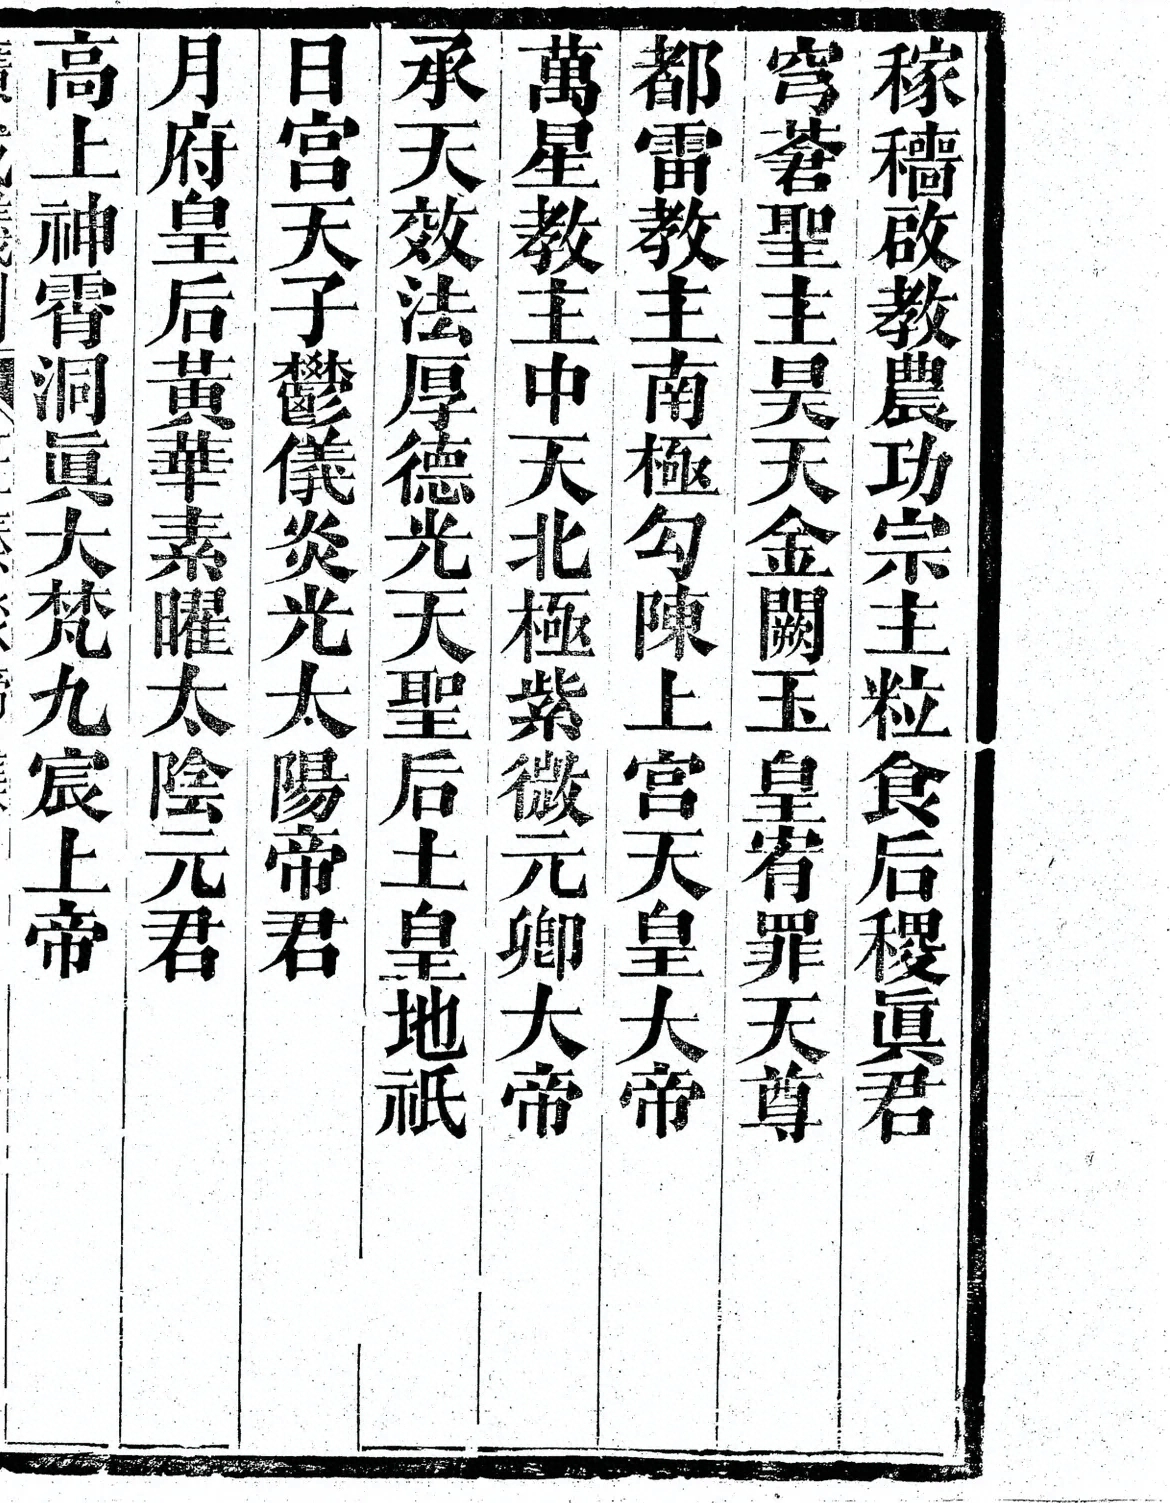 稼穡啟教農功宗主粒食后稷眞君
穹蒼聖主昊天金闕玉皇宥罪天尊
都雷教主南極勾陳上宮天皇大帝
萬星教主中天北極紫微元卿大帝
承天效法厚德光天聖后土皇地祇
日宮天子鬱儀炎光太陽帝君
月府皇后黃華素曜太陰元君
高上神霄洞眞大梵九宸上帝